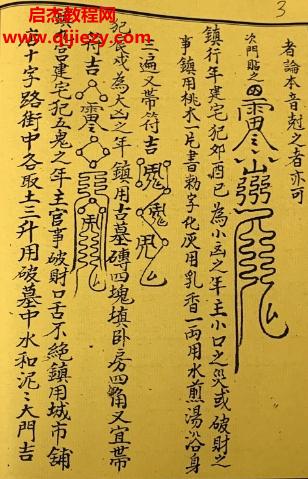 启杰教程网
www.qijiejc.com
3
者論本音尅之者亦可
次門貼之
鎮行年建宅犯卯酉巳為小凶之年主小口之災或破財之
事鎮用桃木一片書勑字化灰用乳香一両用水煎湯浴身
三遍又帶符吉
犯辰戌為大凶之年鎮用古墓磚四塊填卧房四角又宜帶
符吉
鎮宮建宅犯五鬼之年主官事破財口舌不絕鎮用城市舖
古十字路街中各取土三升用破墓中水和泥泥大門吉